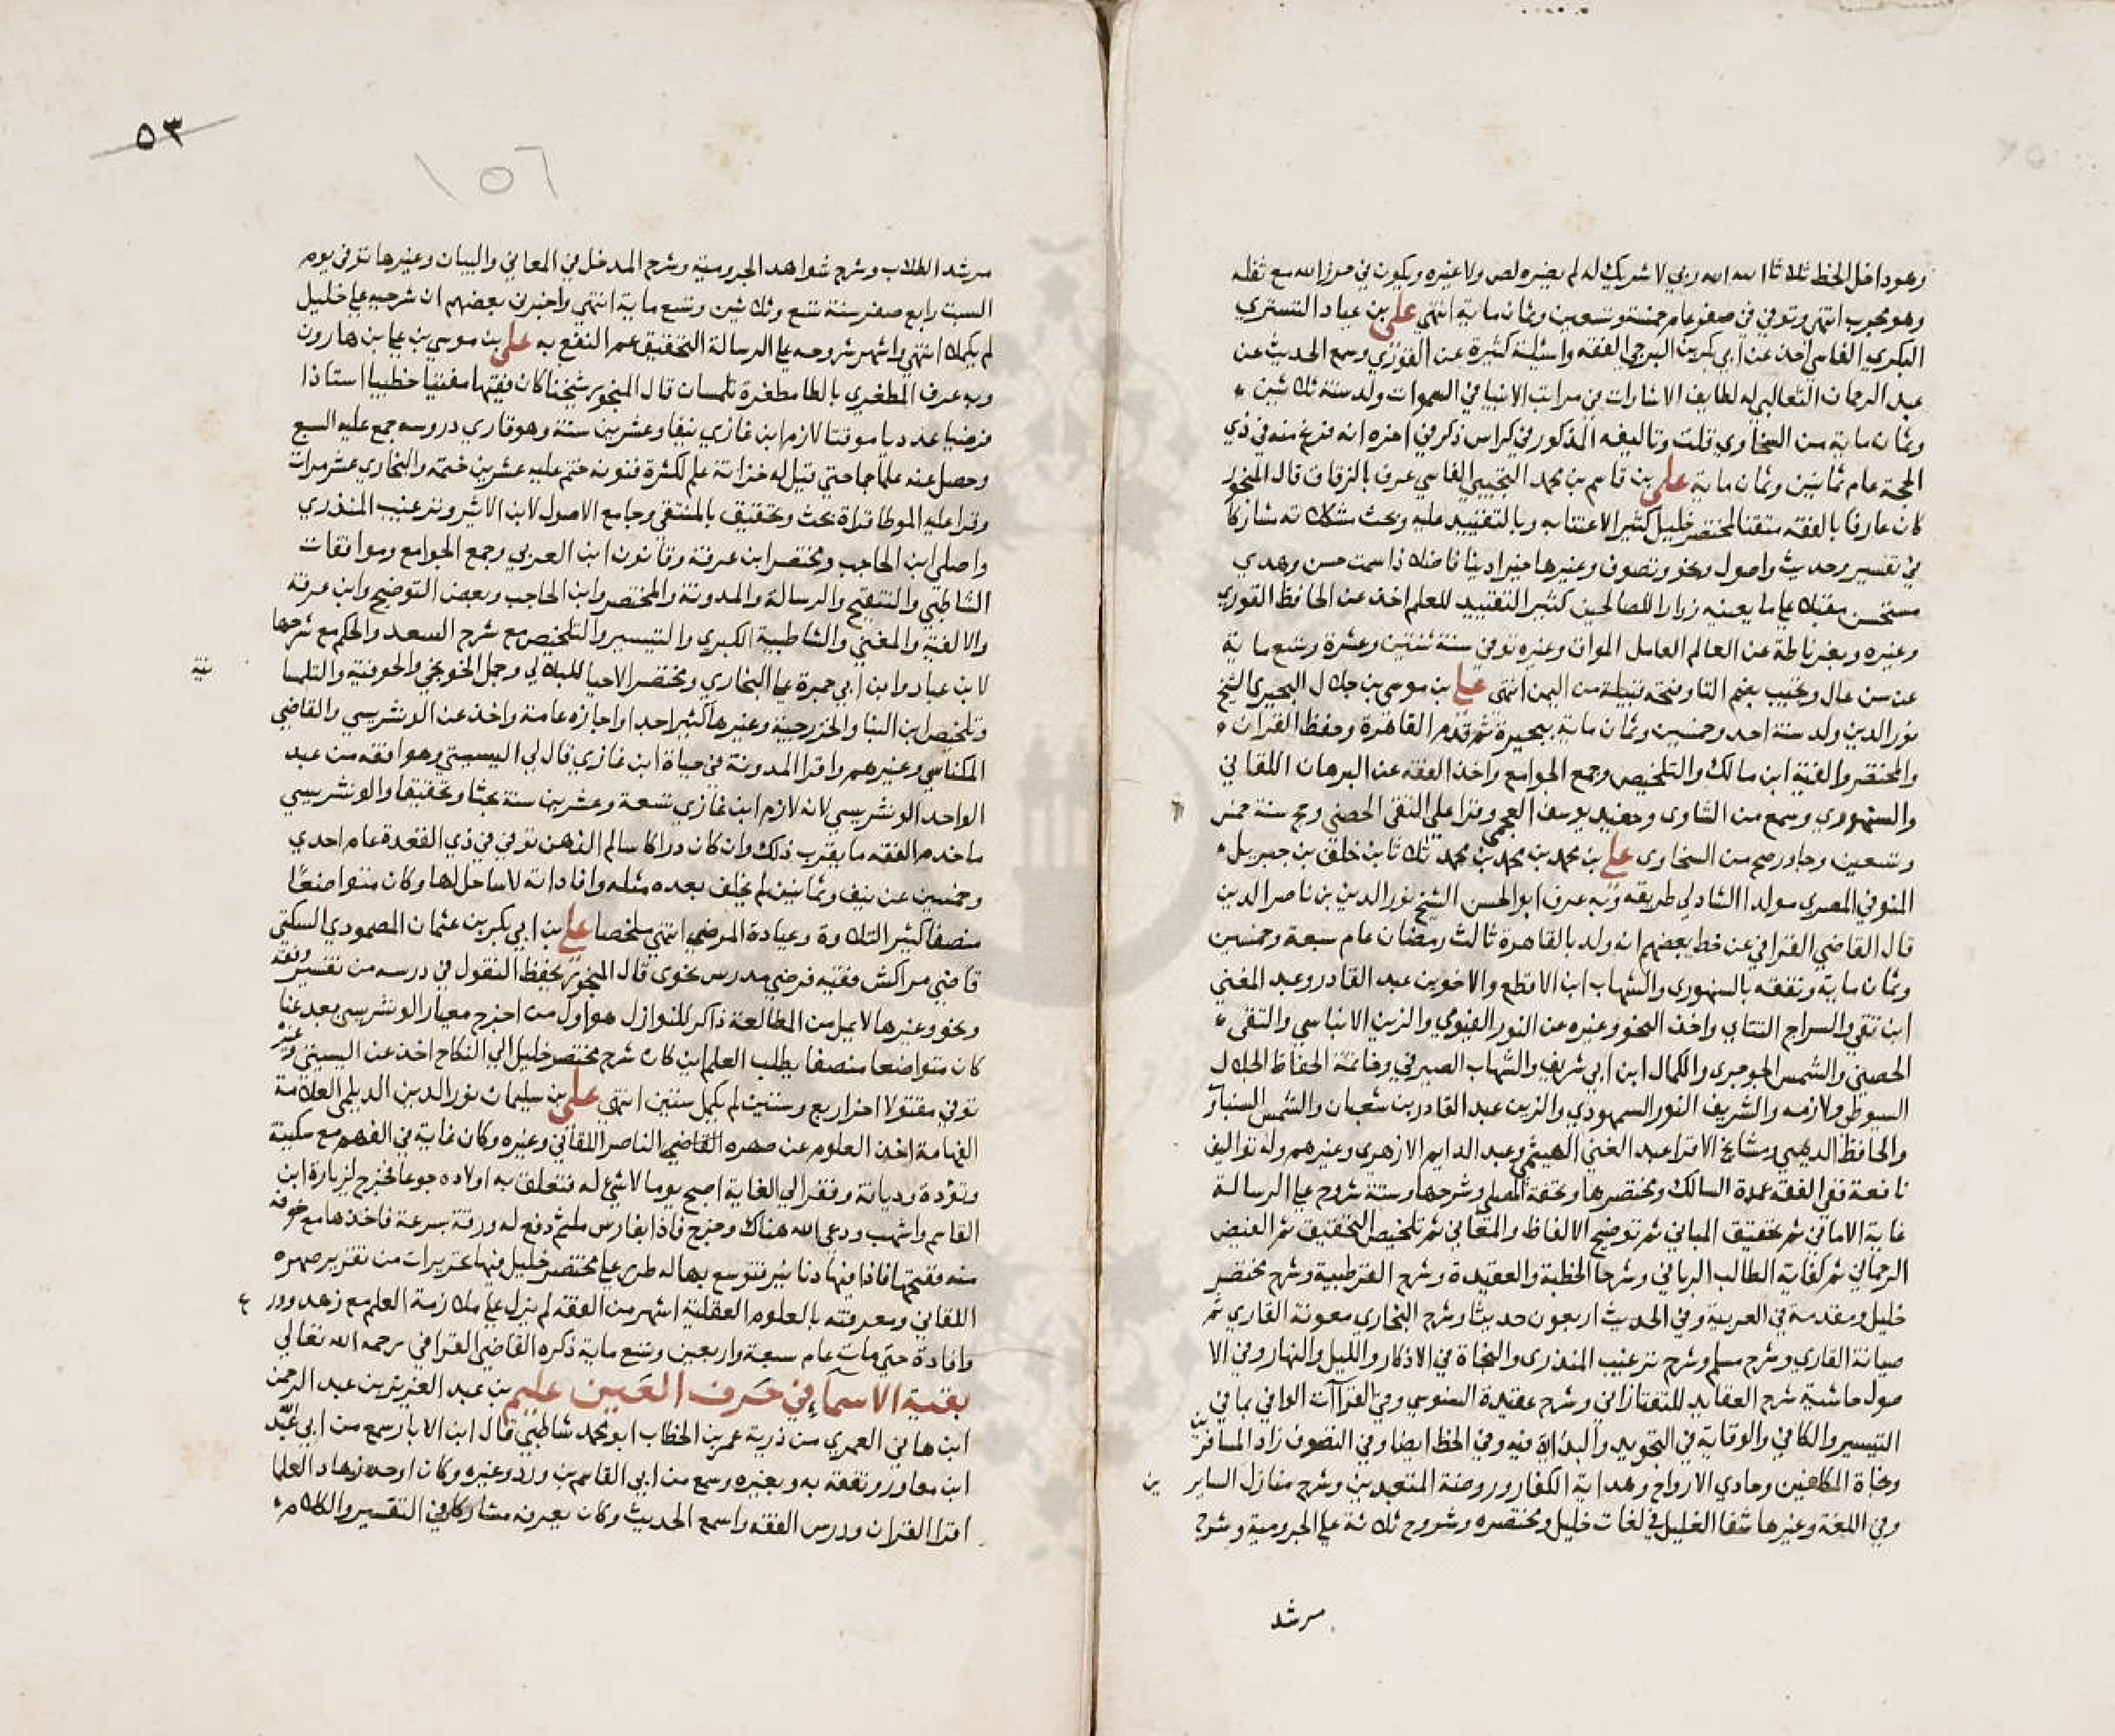 وعود داخل الخط ثلاثا الله الله ربي لا شريك له لم يضره لص ولا غيره ويكون في حرز الله مع ثقله
وهو مجرب انتهى وتوفي في صفر عام خمسة وتسعين وثمان ماية انتهى علي بن عياد التستري
البكري الفاسي اخذ عن ابي بكر بن البرجي الفقه واسئلة كثيرة عن القوري وسمع الحديث عن
عبد الرحمان الثعالبي له لطايف الاشارات في مراتب الانبيا في السموات ولد سنة ثلاثين
وثمان ماية من السخاوي قلت وتاليفه المذكور في كراس ذكر في اخره انه فرغ منه في ذي
الحجة عام ثمانين وثمان ماية علي بن قاسم بن محمد التجيبي الفاسي عرف بالزقاق قال المنجور
كان عارفا بالفقه متقنا لمختصر خليل كثير الاعتنا به وبالتقييد عليه وبحث مشكلاته مشاركا
في تفسير وحديث واصول ونحو وتصوف وغيرها خيرا دينا فاضلا ذا سمت حسن وهدي
مستحسن مقبلا على ما يعنيه زوارا للصالحين كثير التقييد للعلم اخذ عن الحافظ القوري
وغيره وبغرناطة عن العالم العامل المواق وغيره توفي سنة ثنتين وعشرة وتسع ماية
عن سن عال وتجيب بضم التا وفتحه قبيلة من اليمن انتهى علي بن موسى بن جلال البحيري الشيخ
نور الدين ولد سنة احد وخمسين وثمان ماية ببحيرة ثم قدم القاهرة وحفظ القران
والمختصر والفية ابن مالك والتلخيص وجمع الجوامع واخذ الفقه عن البرهان اللقاني
والسنهوري وسمع من الشاوي وحفيد يوسف العجمي وقرا على التقى الحصني وحج سنة خمس
وتسعين وجاور صح من السخاوي علي بن محمد بن محمد بن محمد ثلاثا بن خلف بن جبريل
المنوفي المصري مولدا الشاذلي طريقه وبه عرف ابو الحسن الشيخ نور الدين بن ناصر الدين
قال القاضي القرافي عن خط بعضهم انه ولد بالقاهرة ثالث رمضان عام سبعة وخمسين
وثمان ماية وتفقه بالسنهوري والشهاب ابن الاقطع والاخوين عبد القادر وعبد المغني
ابن تقي والسراج التتاي واخذ النحو وغيره عن النور الفيومي والزين الابناسي والتقى
الحصيني والشمس الجوجري والكمال ابن ابي شريف والشهاب الصيرفي وخاتمة الحفاظ الجلال
السيوطي ولازمه والشريف النور السمهودي والزين عبد القادر بن شعبان والشمس
والحافظ الديمي ومشايخ الاقرا عبد الغني الهيثمي وعبد الدايم الازهري وغيرهم وله تواليف
نافعة في الفقه عمدة السالك ومختصرها وتحفة المصلي وشرحها وستة شروح على الرسالة
غاية الاماني ثم تحقيق المباني ثم توضيح الالفاظ والمعاني ثم تلخيص التحقيق ثم الفيض
الرحماني ثم كفاية الطالب الرباني وشرحا الخطبة والعقيدة وشرح القرطبية وشرح مختصر
خليل ومقدمة في العربية وفي الحديث اربعون حديثا وشرح البخاري معونة القاري ثم
صيانة القاري وشرح مسلم وشرح ترغيب المنذري والنجاة في الاذكار والليل والنهار وفي الا
صول حاشية شرح العقايد للتفتازاني وشرح عقيدة السنوسي وفي القراآت الوافي بما في
التيسير والكافي والوقاية في التجويد والبداية فيه وفي الخط ايضا وفي التصوف زاد المسافرين
ونجاة المكلفين وحادي الارواح وهداية الكفار وروضة المتعبدين وشرح منازل السايرين
وفي اللغة وغيرها شفا الغليل في لغات خليل ومختصره وشروح ثلاثة على الجرومية وشرح
مرشد
٥٣
١٥٦
مرشد الطلاب وشرح شواهد الجرومية وشرح المدخل في المعاني والبيان وغيرها توفي يوم
السبت رابع صفر سنة تسع وثلاثين وتسع ماية انتهى واخبرني بعضهم ان شرحيه على خليل
لم يكملا انتهى واشهر شروحه على الرسالة التحقيق عم النفع به علي بن موسى بن علي بن هارون
وبه عرف المطغري بالطا مطغرة تلمسان قال المنجور شيخنا كان فقيها مفتيا خطيبا استاذا
فرضيا عدديا موقتا لازم ابن غازي نيفا وعشرين سنة وهو قاري دروسه جمع عليه السبع
وحصل عنه علما جما حتى قيل له خزانة علم لكثرة فنونه ختم عليه عشرين ختمة والبخاري عشر مرات
وقرا عليه الموطا قراة بحث وتحقيق بالمنتقى وجامع الاصول لابن الاثير وترغيب المنذري
واصلي ابن الحاجب ومختصر ابن عرفة وقانون ابن العربي وجمع الجوامع وموافقات
الشاطبي والتنقيح والرسالة والمدونة والمختصر وابن الحاجب وبعض التوضيح وابن عرفة
والالفية والمغني والشاطبية الكبرى والتيسير والتلخيص مع شرح السعد والحكم مع شرحها
لابن عباد وابن ابي جمرة على البخاري ومختصر الاحيا للبلالي وجمل الخونجي والحوفية والتلمسا
نية
وتلخيص ابن البنا والخزرجية وغيرها كثير احدا واجازه عامة واخذ عن الونشريسي والقاضي
المكناسي وغيرهم واقرا المدونة في حياة ابن غازي قال لي اليسيتي وهو افقه من عبد
الواحد الونشريسي لانه لازم ابن غازي تسعة وعشرين سنة بحثا وتحقيقا والونشريسي
ما خدم الفقه ما يقرب ذلك وان كان دراكا سالم الذهن توفي في ذي القعدة عام احدي
وخمسين عن نيف وثمانين لم يخلف بعده مثله وافاداته لا ساحل لها وكان متواضعا
منصفا كثير التلاوة وعيادة المرضى انتهى ملخصا علي بن ابي بكر بن عثمان المصمودي السكتي
قاضي مراكش فقيه فرضي مدرس نحوي قال المنجور يحفظ النقول في درسه من تفسير وفقه
ونحو وغيرها لا يمل من المطالعة ذاكر للنوازل هو اول من اخرج معيار الونشريسي بعد عنا
كان متواضعا منصفا يطلب العلم اين كان شرح مختصر خليل الى النكاح اخذ عن اليسيتي وغيره
توفي مقتولا اخر اربع وستين لم يكمل ستين انتهى علي بن سليمان نور الدين الديلمي العلامة
الفهامة اخذ العلوم عن صهره القاضي الناصر اللقاني وغيره وكان غاية في الفهم مع سكينة
وتؤدة وديانة وفقر الى الغاية اصبح يوما لا شيء له فتعلق به اولاده جوعا فخرج لزيارة ابن
القاسم واشهب ودعى الله هناك وخرج فاذا بفارس ملثم دفع له ورقة بسرعة فاخذها مع خوفه
منه ففتحها فاذا فيها دنانير فتوسع بها له طرر على مختصر خليل فيها تحريرات من تقرير صهره
اللقاني ومعرفته بالعلوم العقلية اشهر من الفقه لم يزل على ملازمة العلم مع زهد وورع
وافادة حتى مات عام سبعة واربعين وتسع ماية ذكره القاضي القرافي رحمه الله تعالى
بقية الاسماء في حرف العين عليم بن عبد العزيز بن عبد الرحمن
ابن هاني العمري من ذرية عمر بن الخطاب ابو محمد شاطبي قال ابن الابار سمع من ابي عبد
ابن معاور وتفقه به وبغيره وسمع من ابي القاسم بن ورد وغيره وكان اوحد زهاد العلما
اقرا القران ودرس الفقه واسمع الحديث وكان يعرفه مشاركا في التفسير والكلام